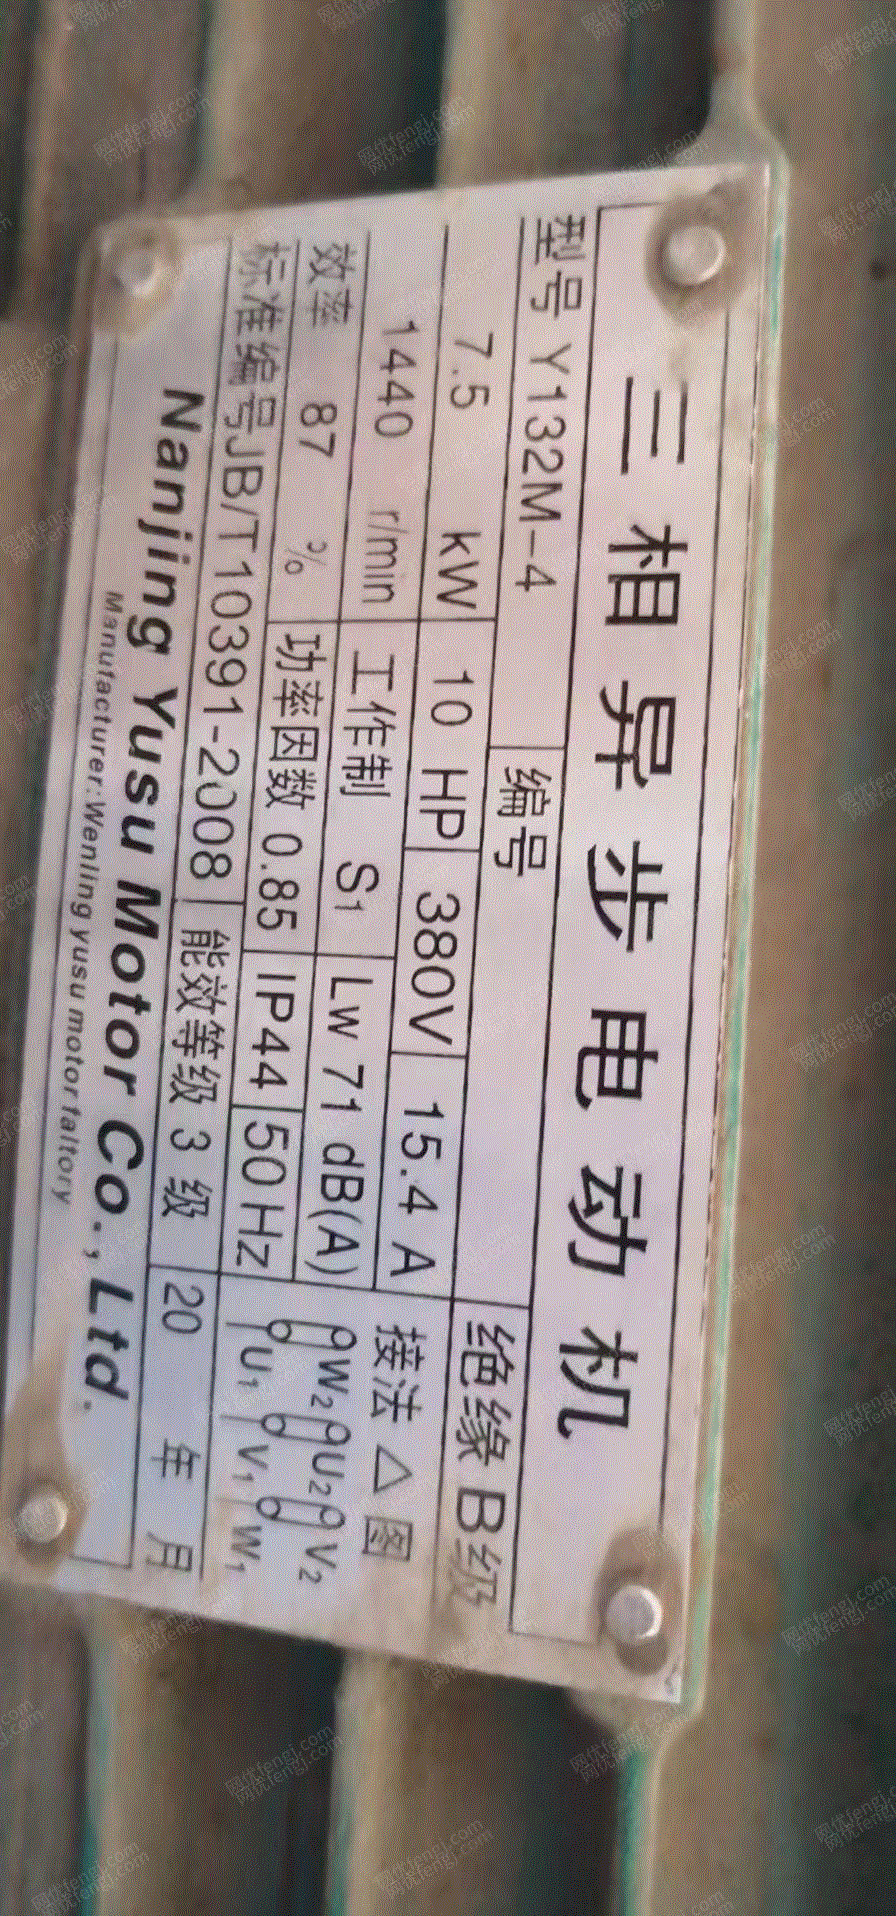 三相异步电动机
型号 Y132M-4 编号 绝缘 B级
7.5 kW 10 HP 380V 15.4 A 接法 △ 图
1440 r/min 工作制 S1 LW 71 dB(A) W2 U2 V2
效率 87 % 功率因数 0.85 IP44 50Hz U1 V1 W1
标准编号JB/T10391-2008 能效等级 3 级 20 年 月
Nanjing Yusu Motor Co., Ltd.
Manufacturer:Wenling yusu motor faltory